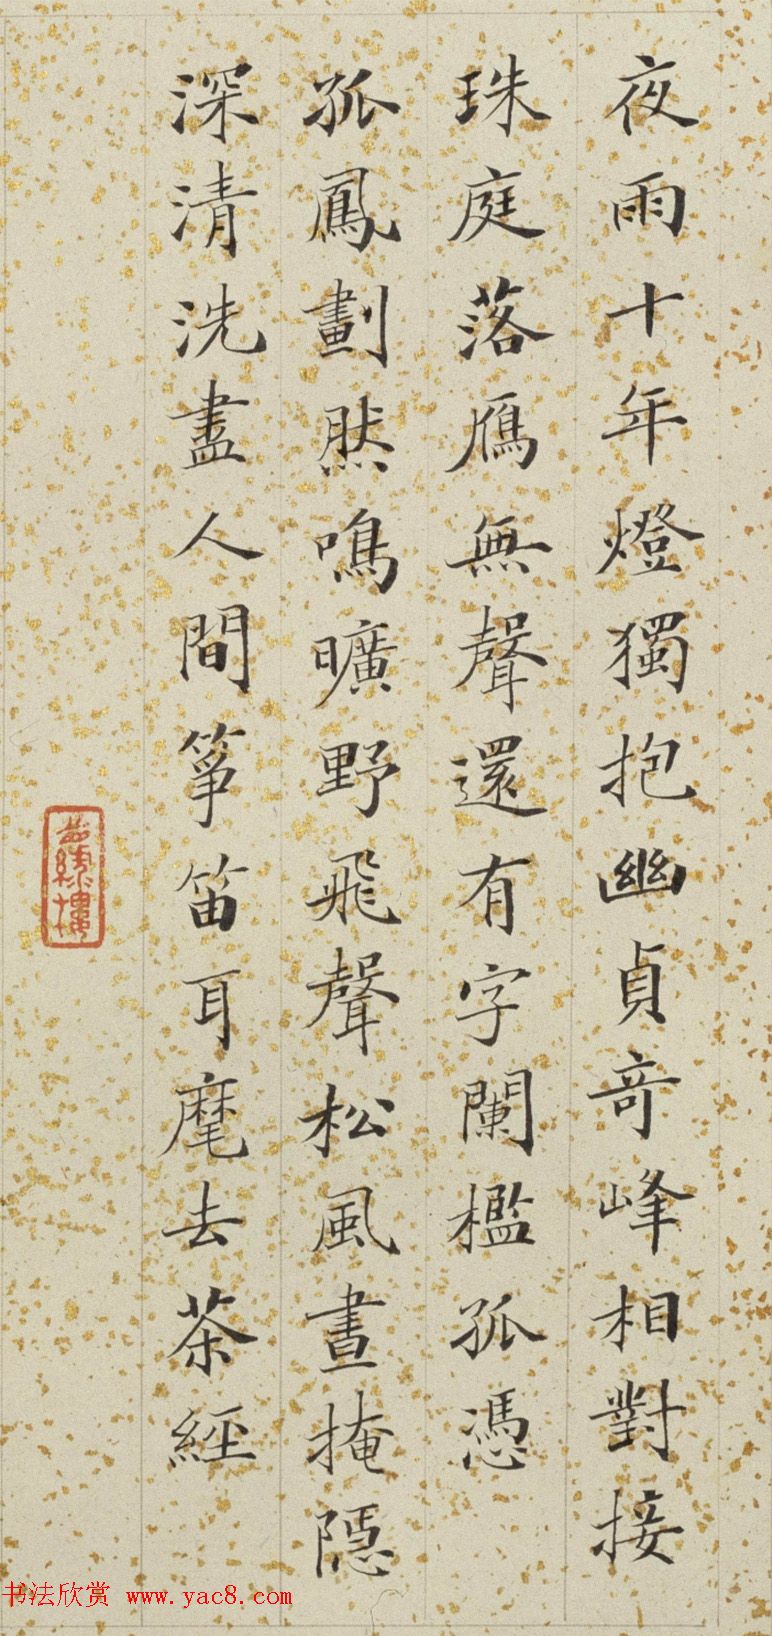 夜雨十年燈獨抱幽貞奇峰相對接
珠庭落鴈無聲還有字闌檻孤憑
孤鳳劃然鳴曠野飛聲松風晝掩隱
深清洗盡人間箏笛耳麾去茶經
书法欣赏 www.yac8.com